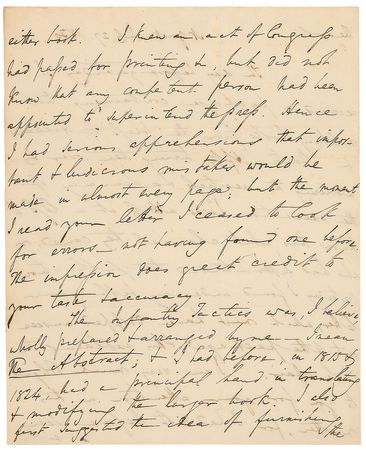 either book. I knew an act of Congress
had passed for printing &c, but did not
know that any competent person had been
appointed to superintend the press. Hence
I had serious apprehensions that impor-
tant & ludicrous mistakes would be
made in almost every page; but the moment
I read your letter I ceased to look
for errors—not having found one before.
The impression does great credit to
your taste & accuracy.
The Infantry Tactics was, I believe,
wholly prepared & arranged by me—I mean
the Abstract; & I had before, in 1815 &
1824, had a principal hand in translating
& modifying the larger book. I also
first suggested the idea of furnishing
the